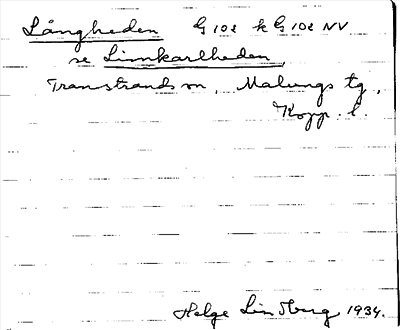 Långheden G 102 k G 102 NV
se Limkarlheden,
Transtrands sn, Malungs tg,
Kopp. l.
Helge Lindberg 1934.